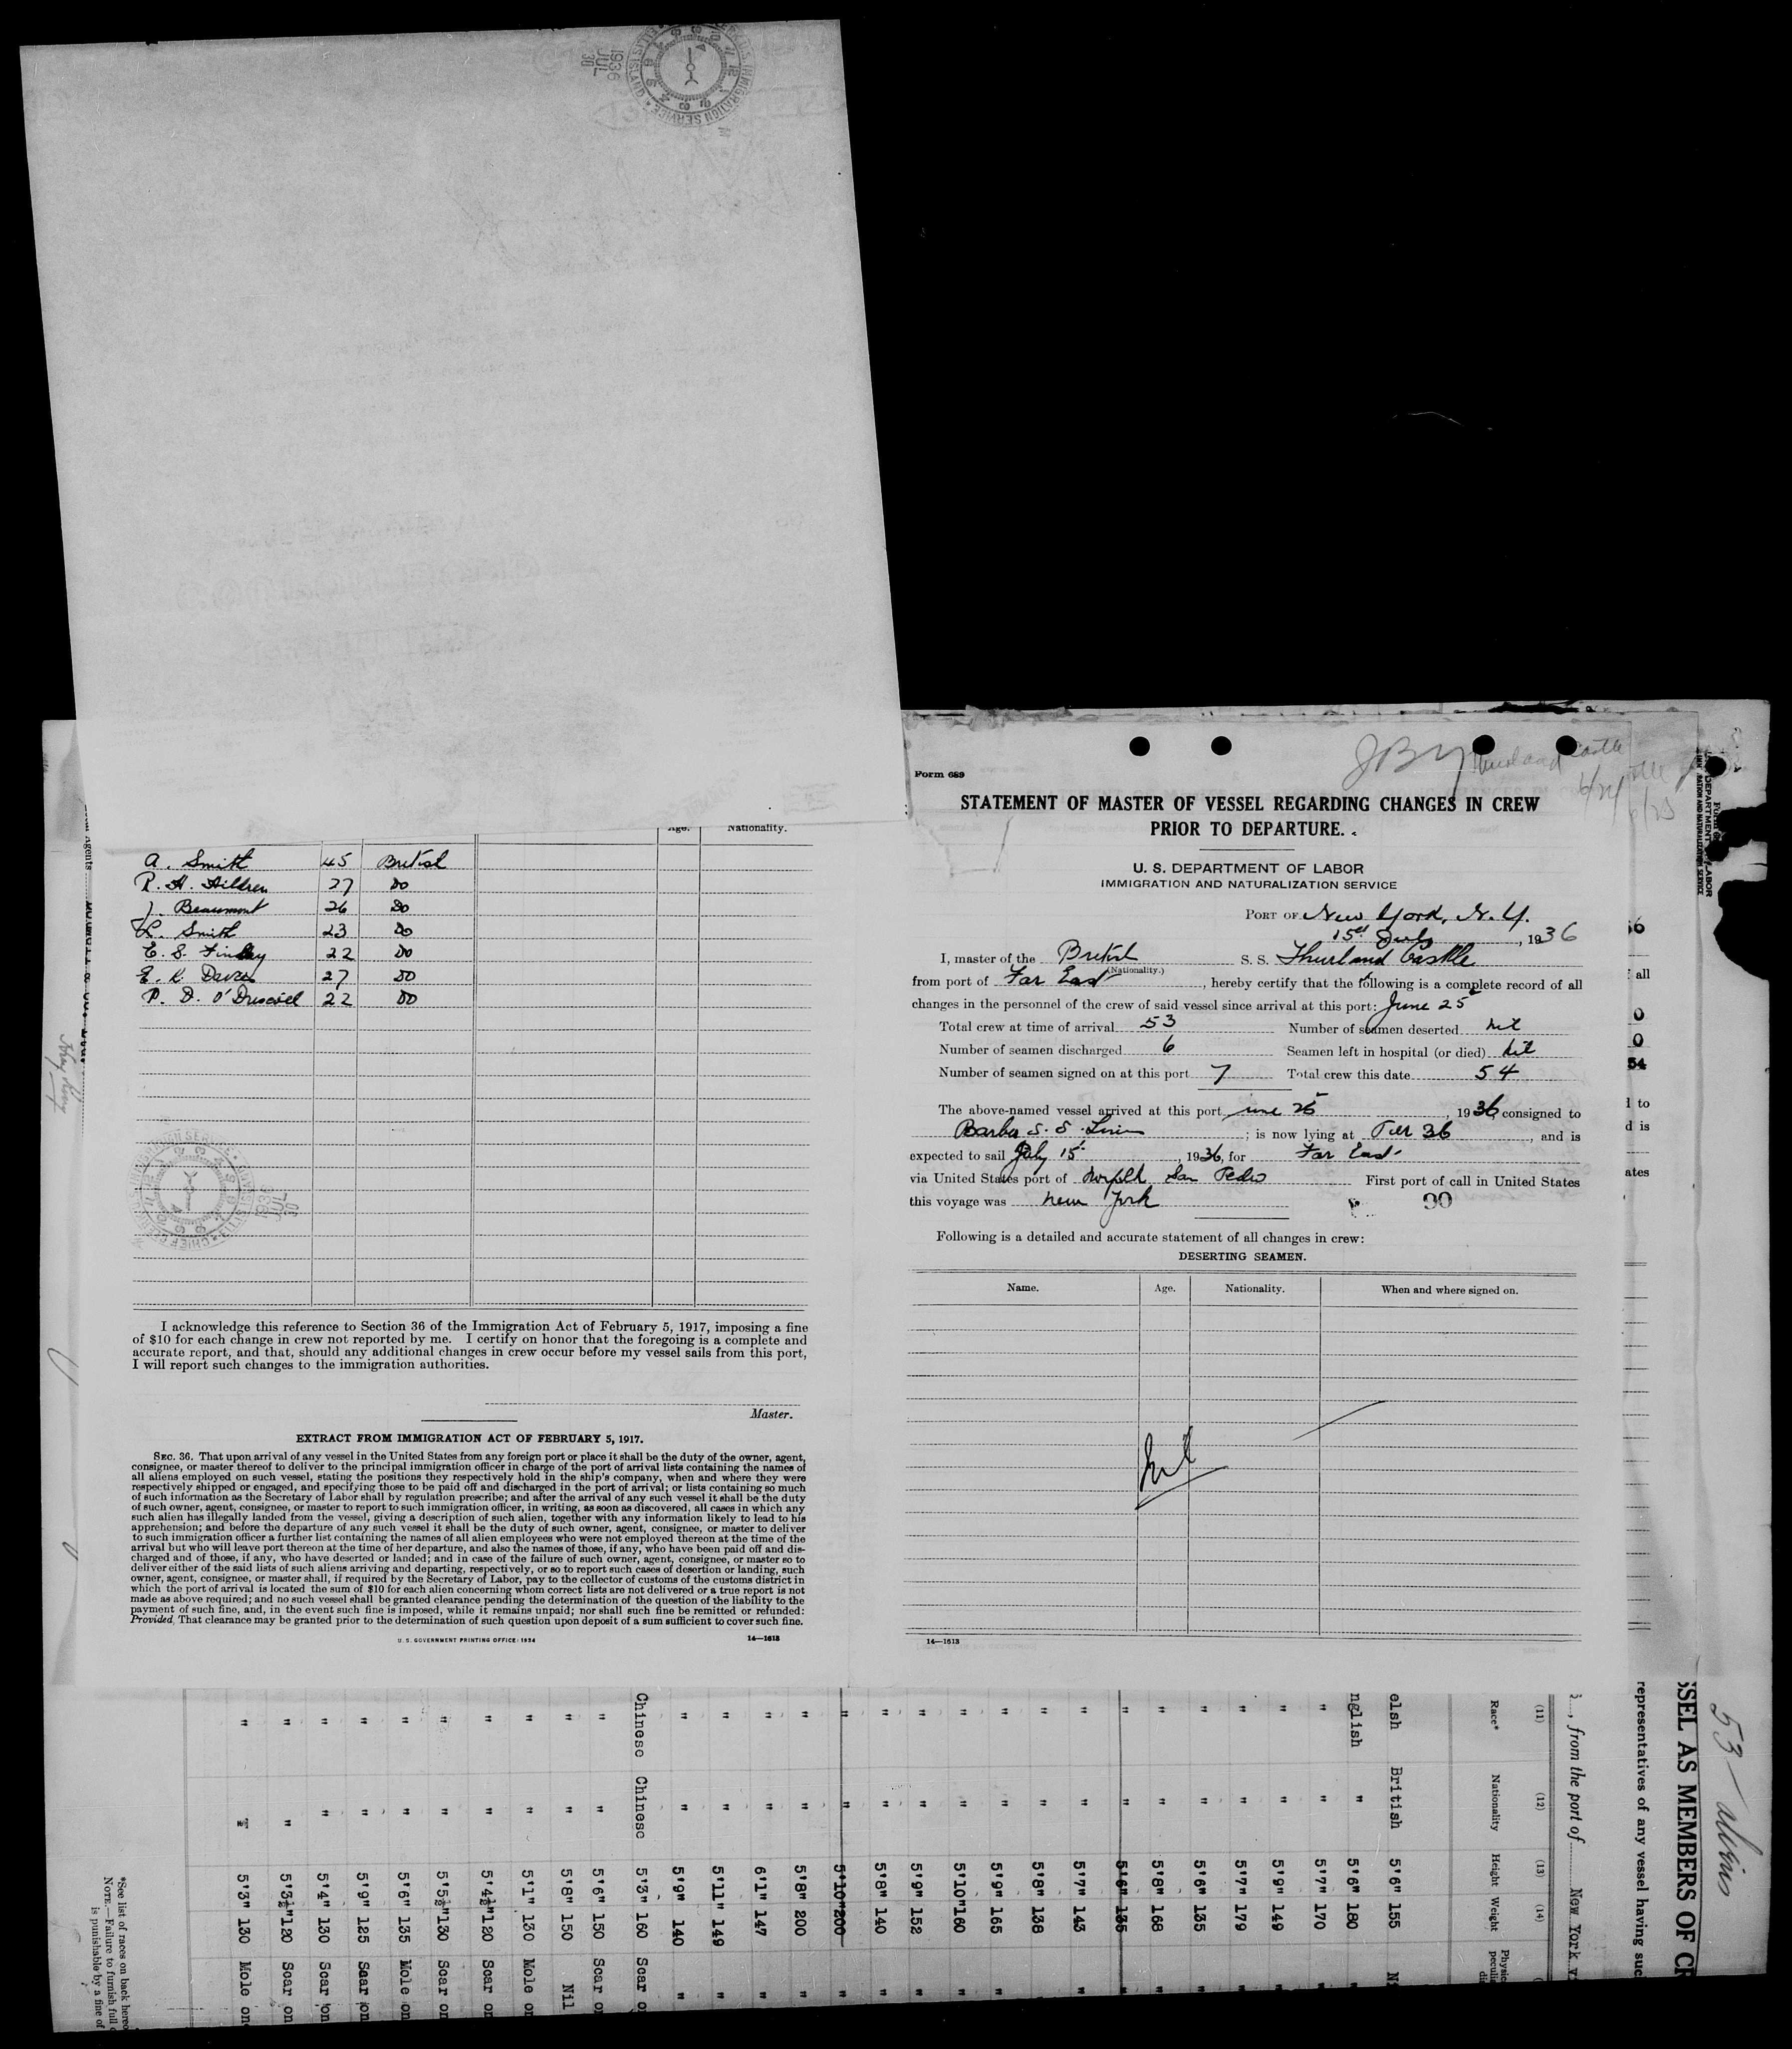 ELLIS ISLAND
IMMIGRATION SERVICE
1936
JUL
30
Age. Nationality.
A. Smith 45 British
R. H. Hildren 27 Do
J. Beaumont 26 Do
L. Smith 23 Do
E. S. Finlay 22 Do
E. R. Davies 27 Do
P. D. O'Driscoll 22 Do
I acknowledge this reference to Section 36 of the Immigration Act of February 5, 1917, imposing a fine
of $10 for each change in crew not reported by me. I certify on honor that the foregoing is a complete and
accurate report, and that, should any additional changes in crew occur before my vessel sails from this port,
I will report such changes to the immigration authorities.
Master.
EXTRACT FROM IMMIGRATION ACT OF FEBRUARY 5, 1917.
SEC. 36. That upon arrival of any vessel in the United States from any foreign port or place it shall be the duty of the owner, agent,
consignee, or master thereof to deliver to the principal immigration officer in charge of the port of arrival lists containing the names of
all aliens employed on such vessel, stating the positions they respectively hold in the ship's company, when and where they were
respectively shipped or engaged, and specifying those to be paid off and discharged in the port of arrival; or lists containing so much
of such information as the Secretary of Labor shall by regulation prescribe; and after the arrival of any such vessel it shall be the duty
of such owner, agent, consignee, or master to report to such immigration officer, in writing, as soon as discovered, all cases in which any
such alien has illegally landed from the vessel, giving a description of such alien, together with any information likely to lead to his
apprehension; and before the departure of any such vessel it shall be the duty of such owner, agent, consignee, or master to deliver
to such immigration officer a further list containing the names of all alien employees who were not employed thereon at the time of the
arrival but who will leave port thereon at the time of her departure, and also the names of those, if any, who have been paid off and dis-
charged and of those, if any, who have deserted or landed; and in case of the failure of such owner, agent, consignee, or master so to
deliver either of the said lists of such aliens arriving and departing, respectively, or so to report such cases of desertion or landing, such
owner, agent, consignee, or master shall, if required by the Secretary of Labor, pay to the collector of customs of the customs district in
which the port of arrival is located the sum of $10 for each alien concerning whom correct lists are not delivered or a true report is not
made as above required; and no such vessel shall be granted clearance pending the determination of the question of the liability to the
payment of such fine, and, in the event such fine is imposed, while it remains unpaid; nor shall such fine be remitted or refunded:
Provided, That clearance may be granted prior to the determination of such question upon deposit of a sum sufficient to cover such fine.
U. S. GOVERNMENT PRINTING OFFICE: 1934 14—1613
Form 689
Thurland Castle
6/24
6/25
STATEMENT OF MASTER OF VESSEL REGARDING CHANGES IN CREW
PRIOR TO DEPARTURE.
U. S. DEPARTMENT OF LABOR
IMMIGRATION AND NATURALIZATION SERVICE
PORT OF New York, N. Y.
15th July, 1936
I, master of the British S. S. Thurland Castle
(Nationality.)
from port of Far East, hereby certify that the following is a complete record of all
changes in the personnel of the crew of said vessel since arrival at this port: June 25
Total crew at time of arrival 53 Number of seamen deserted nil
Number of seamen discharged 6 Seamen left in hospital (or died) nil
Number of seamen signed on at this port 7 Total crew this date 54
The above-named vessel arrived at this port June 25, 1936, consigned to
Barber S. S. Lines; is now lying at Pier 36, and is
expected to sail July 15, 1936, for Far East
via United States port of Norfolk San Pedro First port of call in United States
this voyage was New York 90
Following is a detailed and accurate statement of all changes in crew:
DESERTING SEAMEN.
Name. Age. Nationality. When and where signed on.
Nil
14—1613
all
0
0
54
to
d is
ates
53 - aliens
SSEL AS MEMBERS OF CR
representatives of any vessel having suc
, from the port of New York
(11) (12) (13) (14)
Race* Nationality Height Weight
elsh British 5'6" 155
nglish " 5'6" 180 "
" " 5'7" 170
" " 5'9" 149
" " 5'7" 179
" " 5'6" 135
" " 5'8" 168
" " 5'6" 135 "
" " 5'7" 143 "
" " 5'8" 138
" " 5'9" 165 "
" " 5'10" 160 "
" " 5'9" 152 "
" " 5'8" 140 "
" " 5'10" 200 "
" " 5'8" 200 "
" " 6'1" 147 "
" " 5'11" 149 "
" " 5'9" 140 "
Chinese Chinese 5'3" 160 Scar o
" " 5'6" 150 Scar o
" " 5'8" 150 Nil
" " 5'1" 130 Mole o
" " 5'4½" 120 Scar on
" " 5'5½" 130 Scar on
" " 5'6" 135 Mole on
" " 5'9" 125 Scar on
" " 5'4" 130 Scar on
" " 5'3½" 120 Scar on
" " 5'3" 130 Mole on
*See list of races on back hereo
NOTE.—Failure to furnish full
is punishable by a fine of